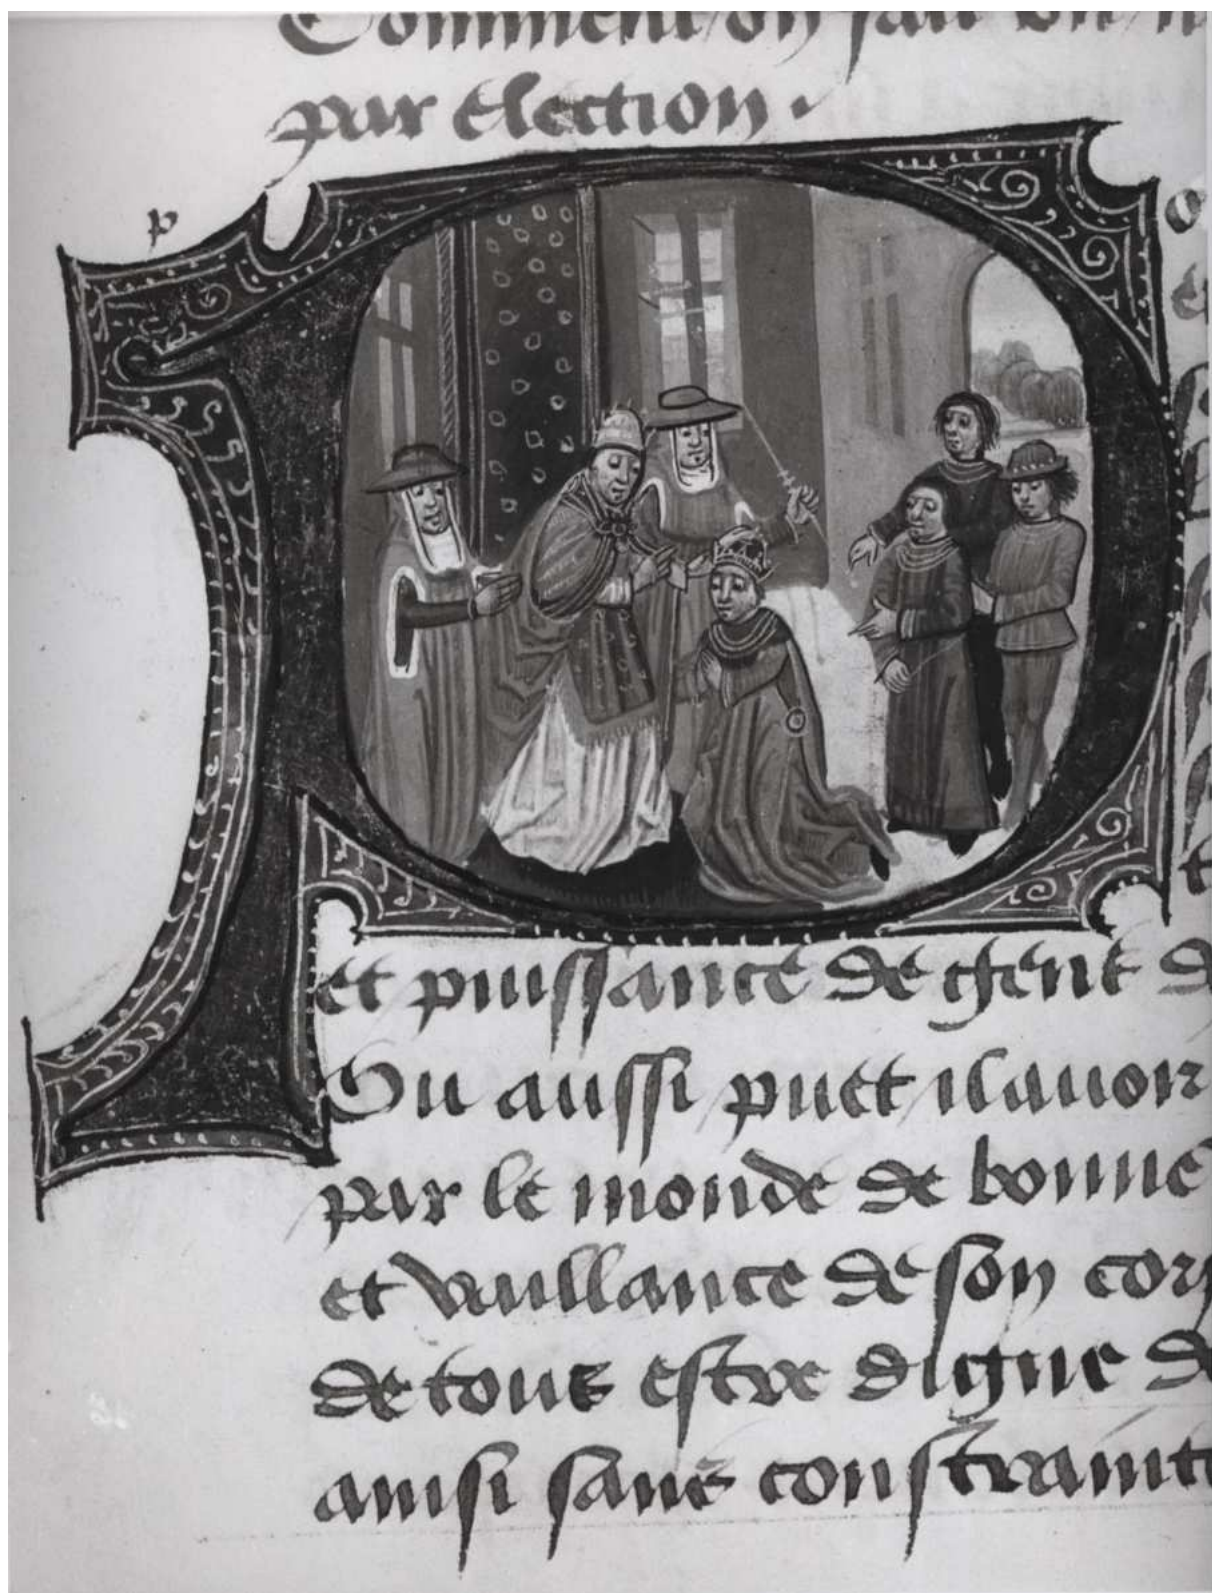 Comment on fait un
par election.
p
P
et puissance de gent d
Ou aussi puet il auoir
par le monde de bonne
et vaillance de son corp
de tous estre digne de
ainsi sans constrainte